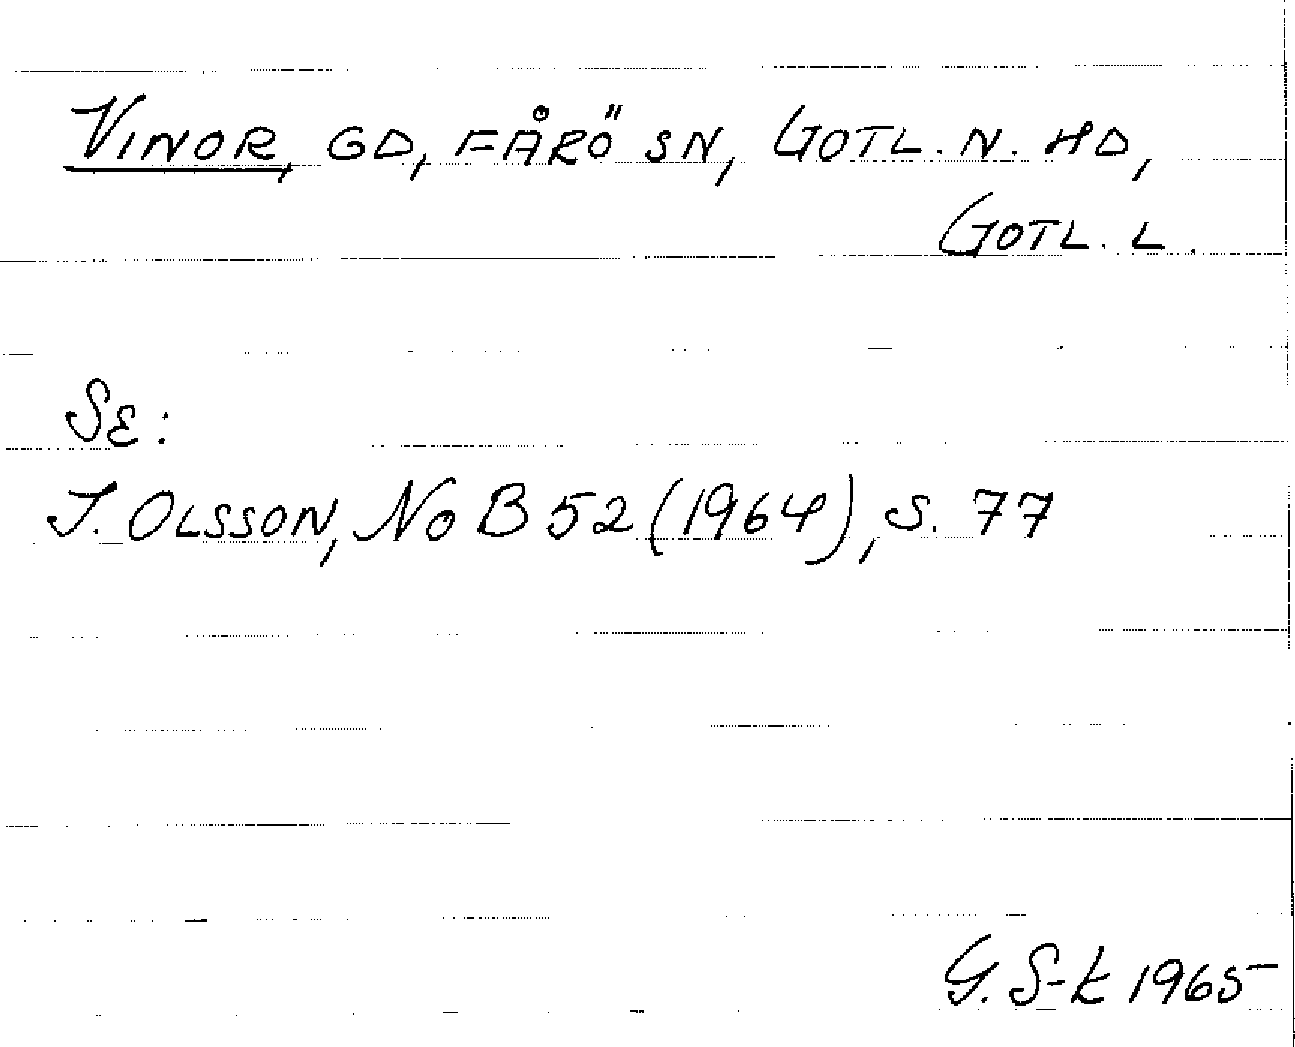 VINOR, GD, FÅRÖ SN, GOTL. N. HD,
GOTL. L.
SE:
I. OLSSON, NoB 52 (1964), S. 77
G. S-k 1965